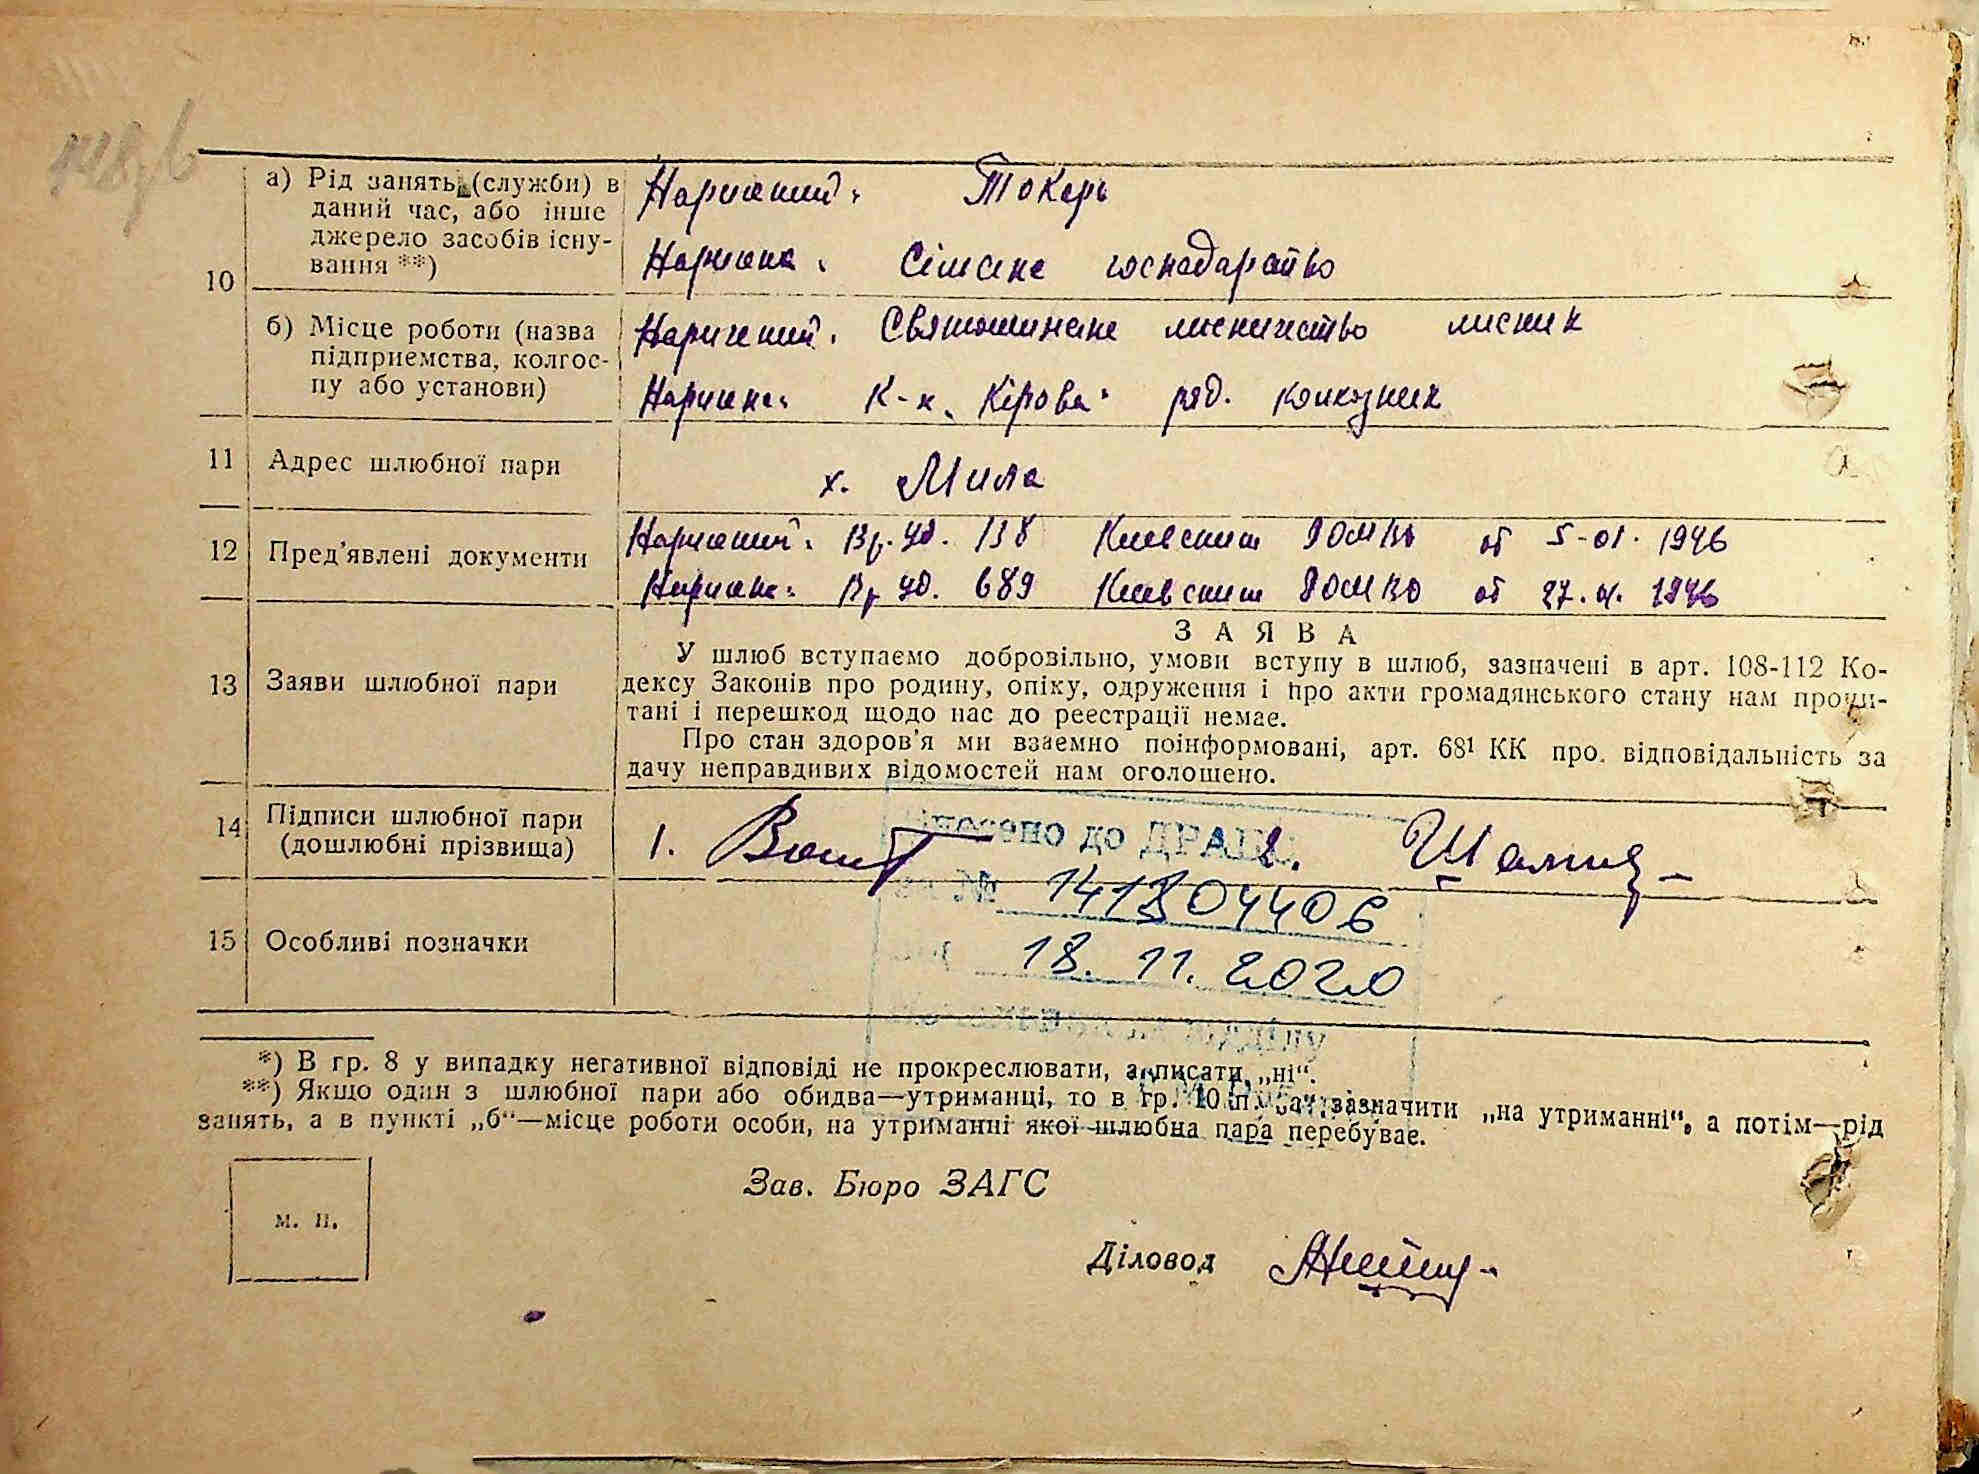 10 а) Рід занять (служби) в даний час, або інше джерело засобів існування **)
Наречений: Токарь
Наречена: Сільське господарство
б) Місце роботи (назва підприємства, колгоспу або установи)
Наречений: Святошинське лисничество лисник
Наречена: К-п „Кірова" ряд. колхозник
11 Адрес шлюбної пари
х. Мила
12 Пред'явлені документи
Наречений: Вр. уд. 138 Киевским РОМВД от 5-01. 1946
Наречена: Вр уд. 689 Киевским РОМВД от 27. 1946
13 Заяви шлюбної пари
ЗАЯВА
У шлюб вступаємо добровільно, умови вступу в шлюб, зазначені в арт. 108-112 Ко-
дексу Законів про родину, опіку, одруження і про акти громадянського стану нам прочи-
тані і перешкод щодо нас до реєстрації немає.
Про стан здоров'я ми взаємно поінформовані, арт. 68¹ КК про. відповідальність за
дачу неправдивих відомостей нам оголошено.
14 Підписи шлюбної пари
(дошлюбні прізвища)
1. 2.
до ДРАЦС
№ 141804406
15 Особливі позначки
18. 11. 2020
відділу
*) В гр. 8 у випадку негативної відповіді не прокреслювати, а писати „ні“.
**) Якщо один з шлюбної пари або обидва—утриманці, то в гр. 10 п. „а“ зазначити „на утриманні“, а потім—рід
занять, а в пункті „б“—місце роботи особи, на утриманні якої шлюбна пара перебуває.
Зав. Бюро ЗАГС
м. п.
Діловод